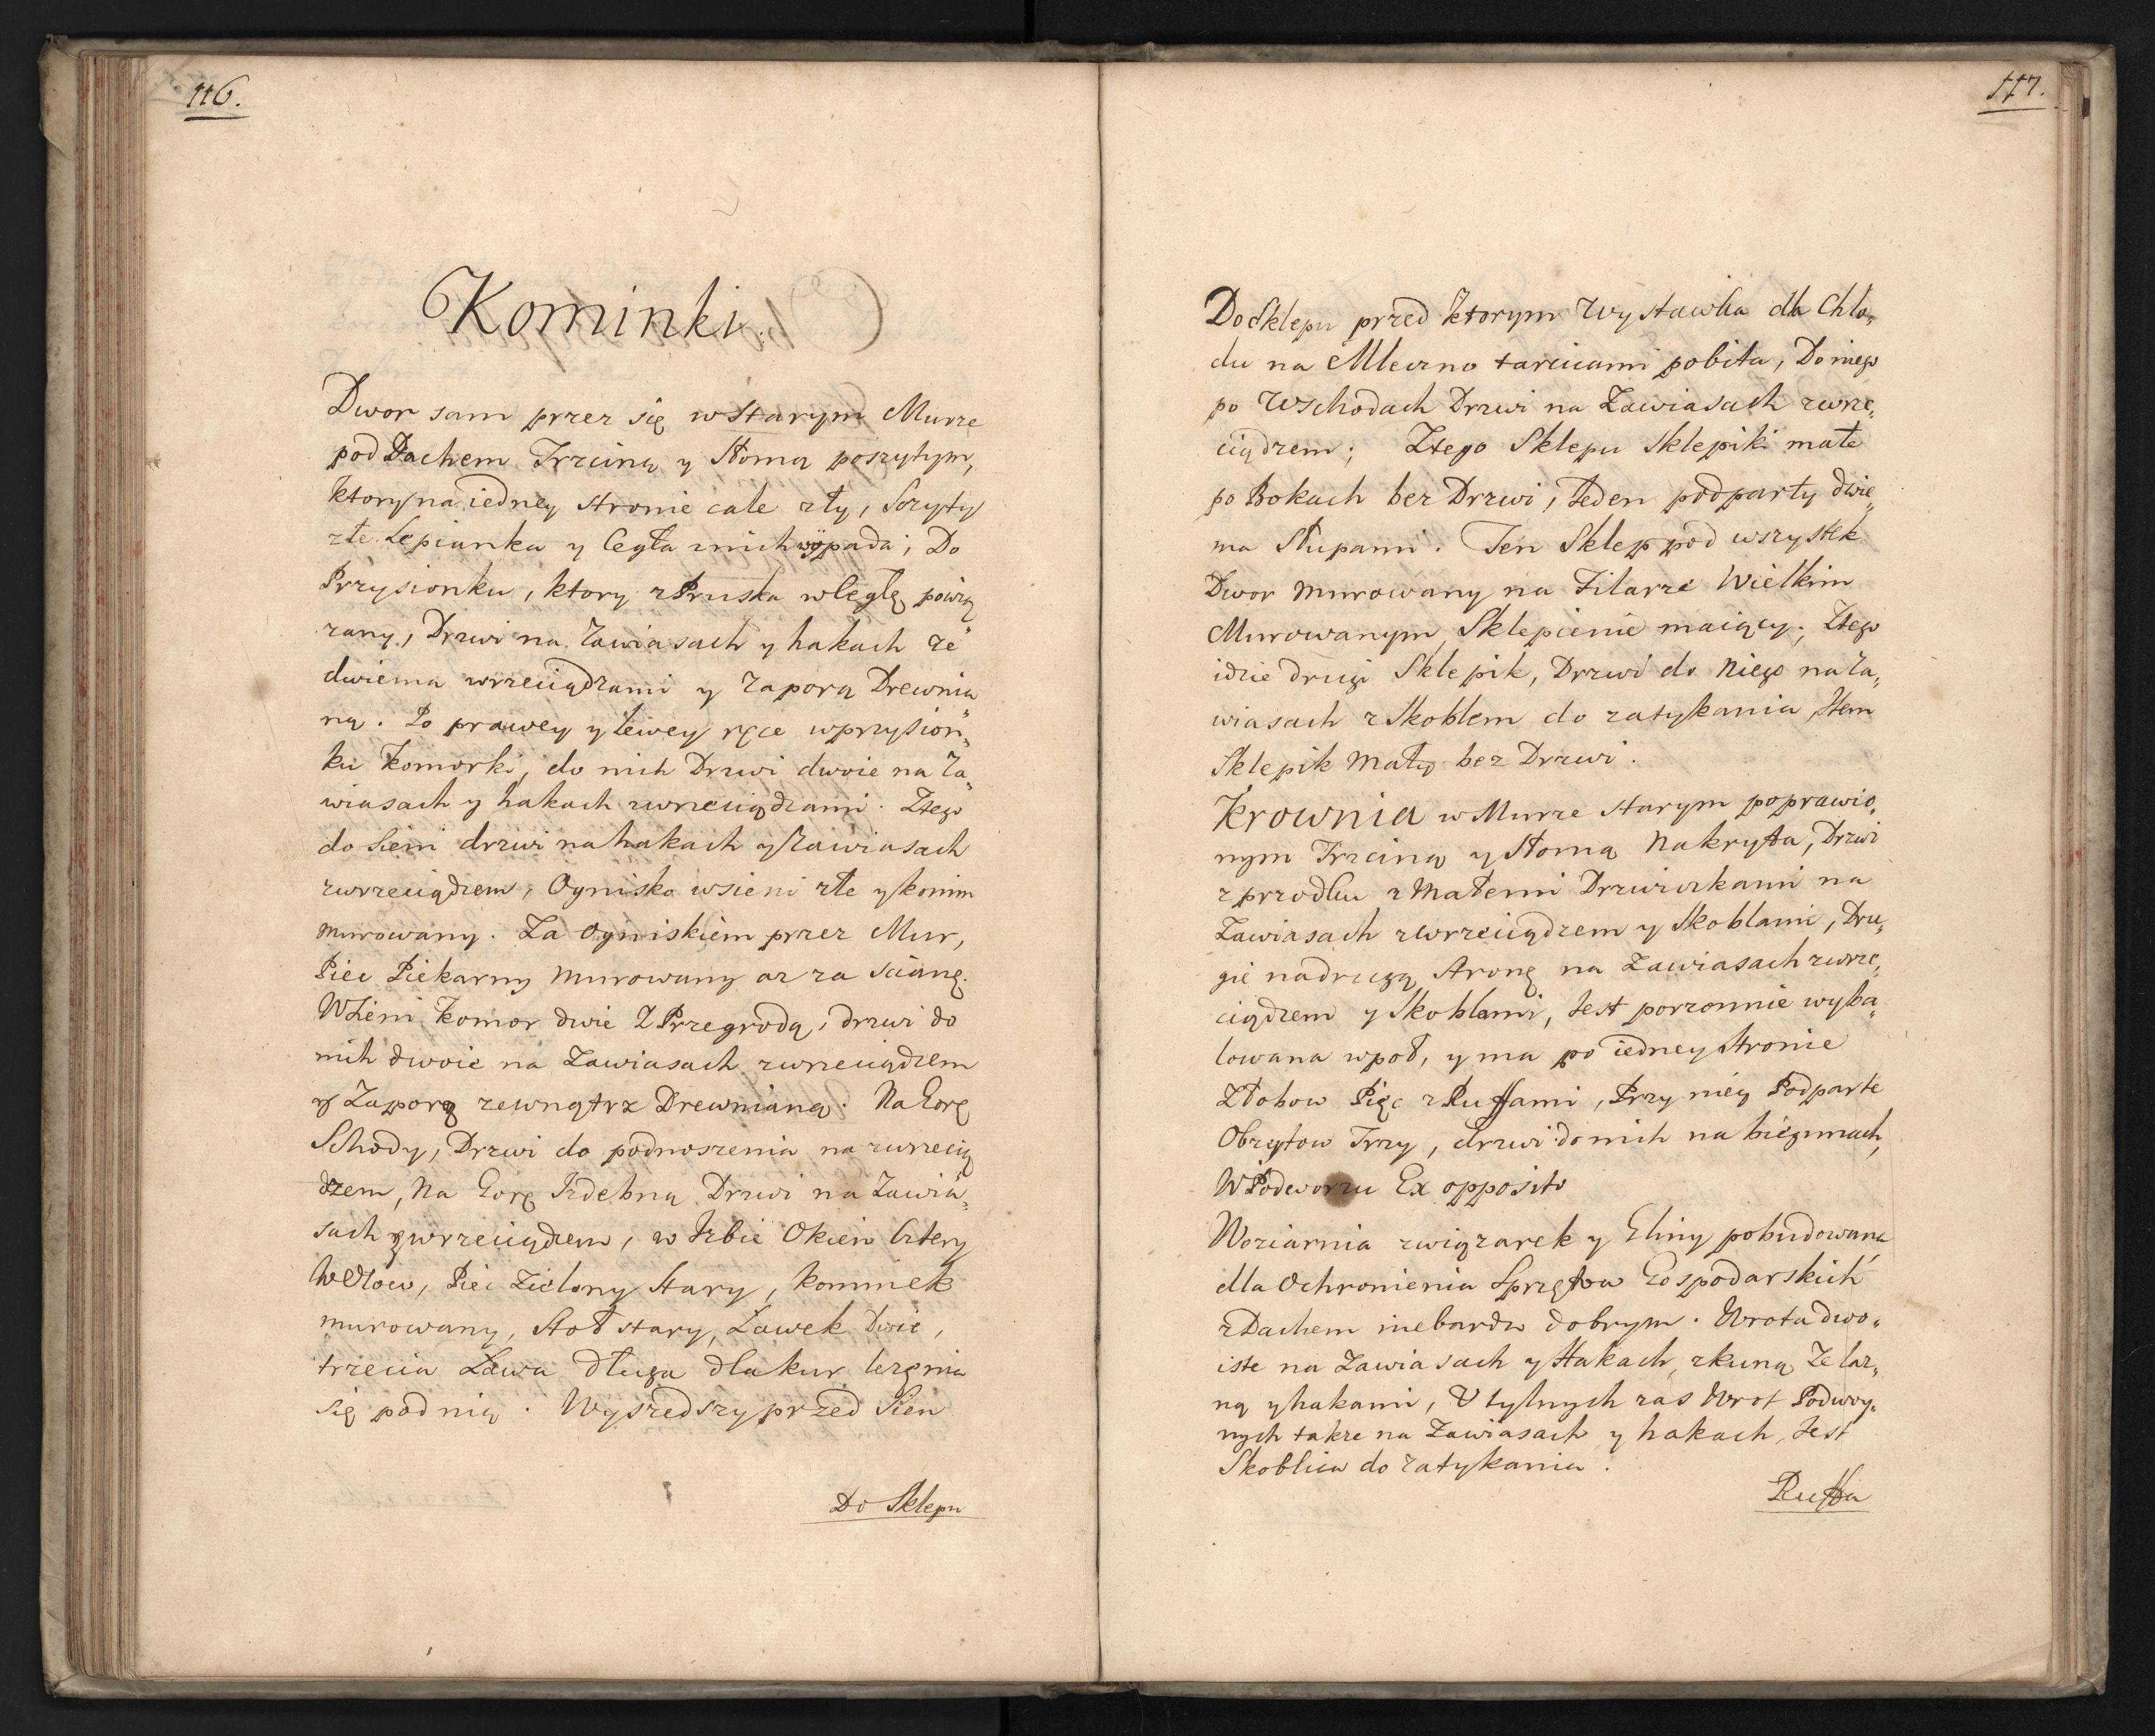 116.
Kominki.
Dwor sam przez się w Starym Murze
pod Dachem Trzciną y Słomą poszytym,
ktory na iedney stronie cale zły, Szczyty
złe Lepianka y Cegła z nich wypada; Do
Przysionku, ktory z Pruska w Cegłę powią„
zany, Drzwi na Zawiasach y hakach ze
dwiema wrzeciądzami y Zaporą Drewnia„
ną. Po prawey y lewey ręce w przysion„
ku Komorki, do nich Drzwi dwoie na Za„
wiasach y hakach z wrzeciądzami. Ztego
do Sieni drzwi na hakach y Zawiasach
z wrzeciądzem, Ognisko w sieni złe y komin
murowany. Za Ogniskiem przez Mur,
Piec Piekarny murowany az za scianę.
W Sieni Komor dwie Z Przegrodą, drzwi do
nich dwoie na Zawiasach z wrzeciądzem
y Zaporą zewnątrz Drewnianą. Na Gorę
Schody, Drzwi do podnoszenia na z wrzecią
dzem, Na Gorę Izdebną Drzwi na Zawia„
sach z wrzeciądzem, w Izbie Okien Cztery
W Ołow, Piec Zielony Stary, Kominek
murowany, Stoł stary, Ławek Dwie,
trzecia Ława Długa dla kur lezenia
się pod nią. Wyszedszy przed Sien
Do Sklepu
117.
Do Sklepu przed ktorym Wystawka dla Chło„
du na Mleczno tarcicami pobita, Do niego
po Wschodach Drzwi na Zawiasach z wrze„
ciądzem; Ztego Sklepu Sklepiki małe
po Bokach bez Drzwi, Jeden podparty dwie„
ma Słupami. Ten Sklep pod wszystek
Dwor murowany na Filarze Wielkim
Murowanym Sklepienie maiący; Ztego
idzie drugi Sklepik, Drzwi do Niego na Za„
wiasach z Skoblem do zatykania, Item
Sklepik Mały bez Drzwi.
Krownia w Murze starym poprawio„
nym Trzciną y Słomą Nakryta, Drzwi
z przodku z Małemi Drzwiczkami na
Zawiasach z wrzeciądzem y Skoblami, Dru„
gie na drugą Stronę na Zawiasach z wrze„
ciądzem y Skoblami, Jest porzonnie wyba„
lowana wpoł, y ma po iedney Stronie
Złobow Pięc z Ruffami, Przy niey Podparte
Obrzytow Trzy, drzwi do nich na biegunach,
W Podworzu Ex opposito
Woziarnia związarek y Gliny pobudowana
dla Ochronienia Sprzętow Gospodarskich
z Dachem niebardzo dobrym. Wrota dwo„
iste na Zawiasach y Hakach, z kuną Zelaz„
ną y hakami, U tylnych zas Wrot Podwoy„
nych takze na Zawiasach y hakach, Jest
Skoblica do Zatykania.
Ruffa